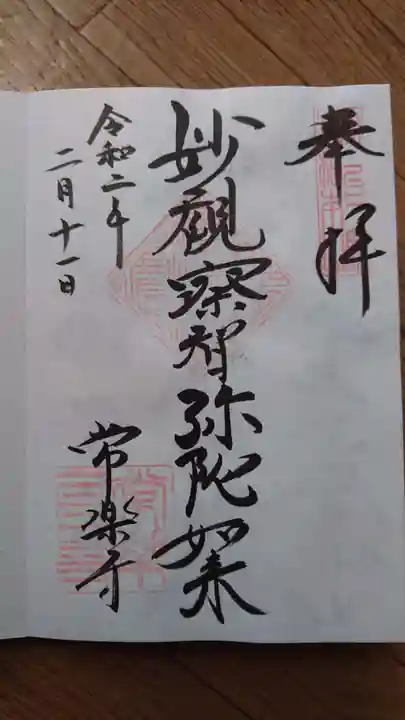 奉拝
妙観察智弥陀如来
令和二年
二月十一日
常楽寺